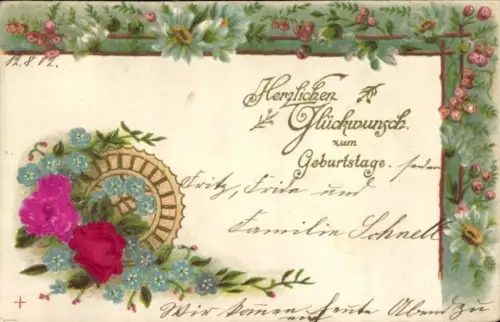 12.8.02.
Herzlichen
Glückwunsch
zum
Geburtstage. senden
Fritz, Frida und
Familie Schnell
Wir kommen heute Abend zu